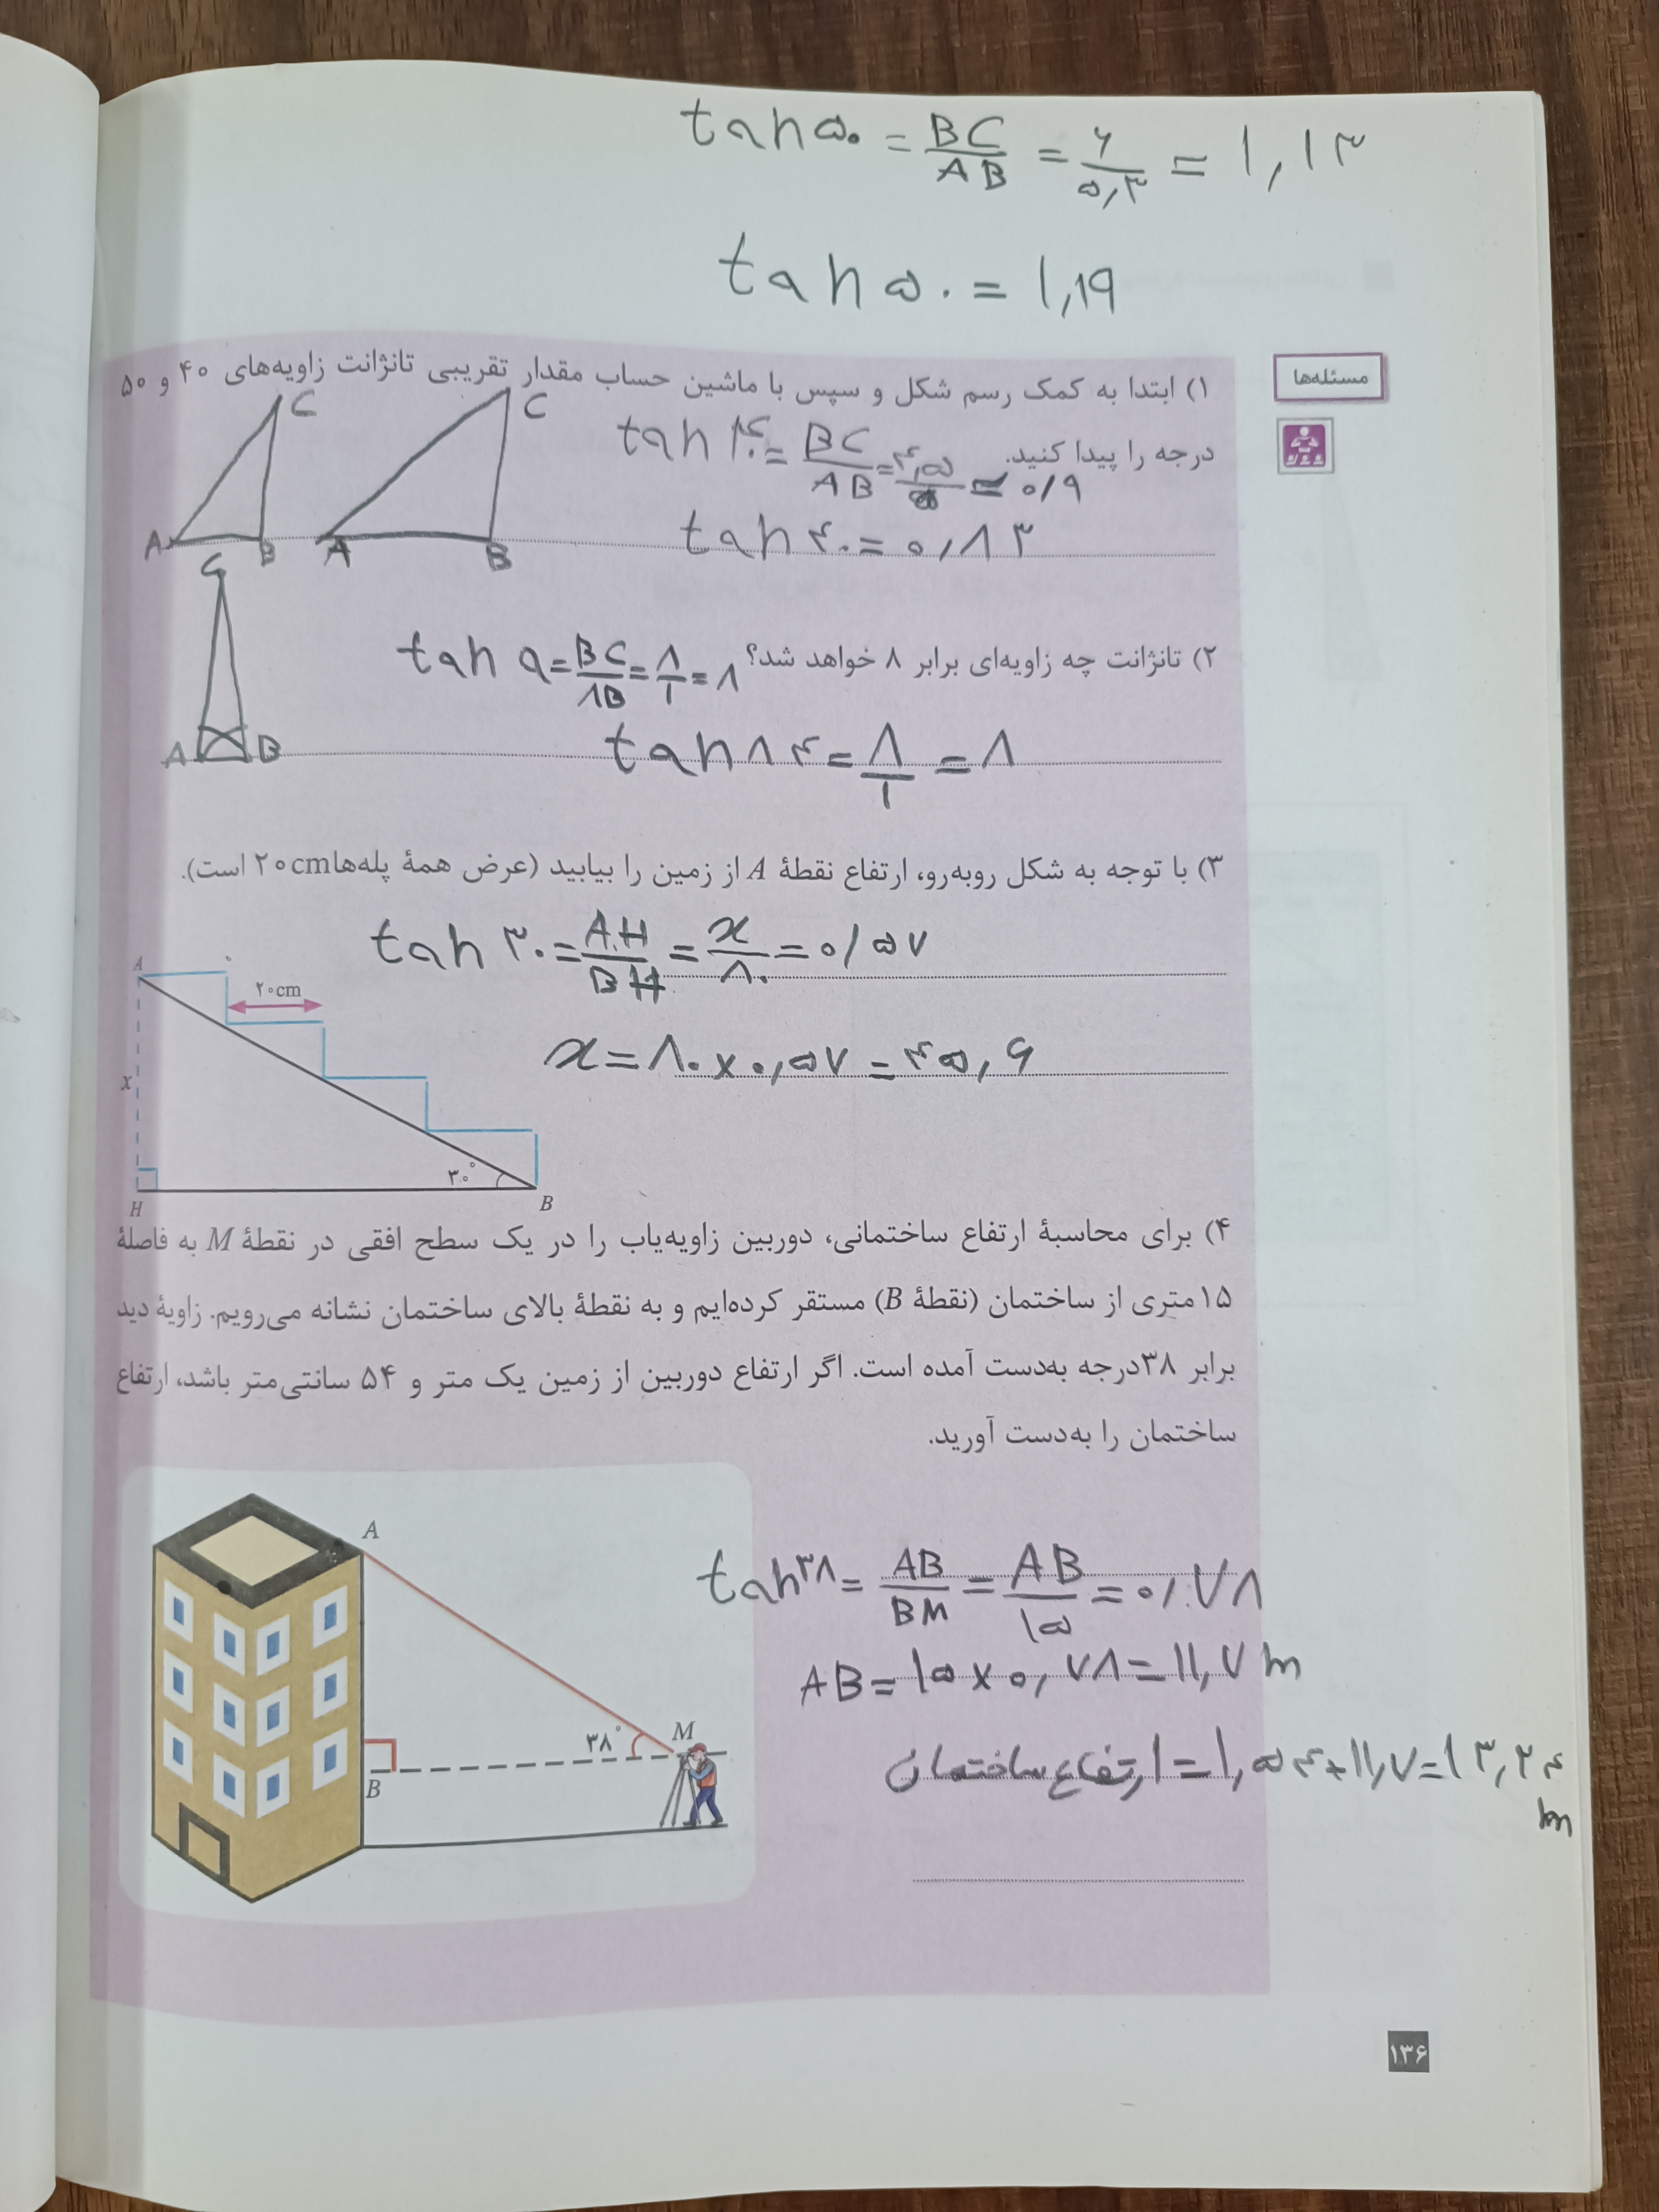 tan ۵۰ = BC/AB = ۶/۵,۳ = ۱,۱۳
tan ۵۰ = ۱,۱۹
مسئله‌ها
۱) ابتدا به کمک رسم شکل و سپس با ماشین حساب مقدار تقریبی تانژانت زاویه‌های ۴۰ و ۵۰
درجه را پیدا کنید.
tan ۴۰ = BC/AB = ۴,۵/۵ = ۰/۹
C
C
A B A B
tan ۴۰ = ۰,۸۳
۲) تانژانت چه زاویه‌ای برابر ۸ خواهد شد؟
tan a = BC/AB = ۸/۱ = ۸
C
A B
tan ۸۴ = ۸/۱ = ۸
۳) با توجه به شکل روبه‌رو، ارتفاع نقطهٔ A از زمین را بیابید (عرض همهٔ پله‌ها ۲۰cm است).
tan ۳۰ = AH/BH = x/۸۰ = ۰/۵۷
A
۲۰cm
x = ۸۰ × ۰,۵۷ = ۴۵,۶
x
۳۰°
H B
۴) برای محاسبهٔ ارتفاع ساختمانی، دوربین زاویه‌یاب را در یک سطح افقی در نقطهٔ M به فاصلهٔ
۱۵ متری از ساختمان (نقطهٔ B) مستقر کرده‌ایم و به نقطهٔ بالای ساختمان نشانه می‌رویم. زاویهٔ دید
برابر ۳۸ درجه به‌دست آمده است. اگر ارتفاع دوربین از زمین یک متر و ۵۴ سانتی‌متر باشد، ارتفاع
ساختمان را به‌دست آورید.
A
tan ۳۸ = AB/BM = AB/۱۵ = ۰/۷۸
AB = ۱۵ × ۰,۷۸ = ۱۱,۷ m
۳۸° M
B
ارتفاع ساختمان = ۱,۵۴ + ۱۱,۷ = ۱۳,۲۴
m
۱۳۶